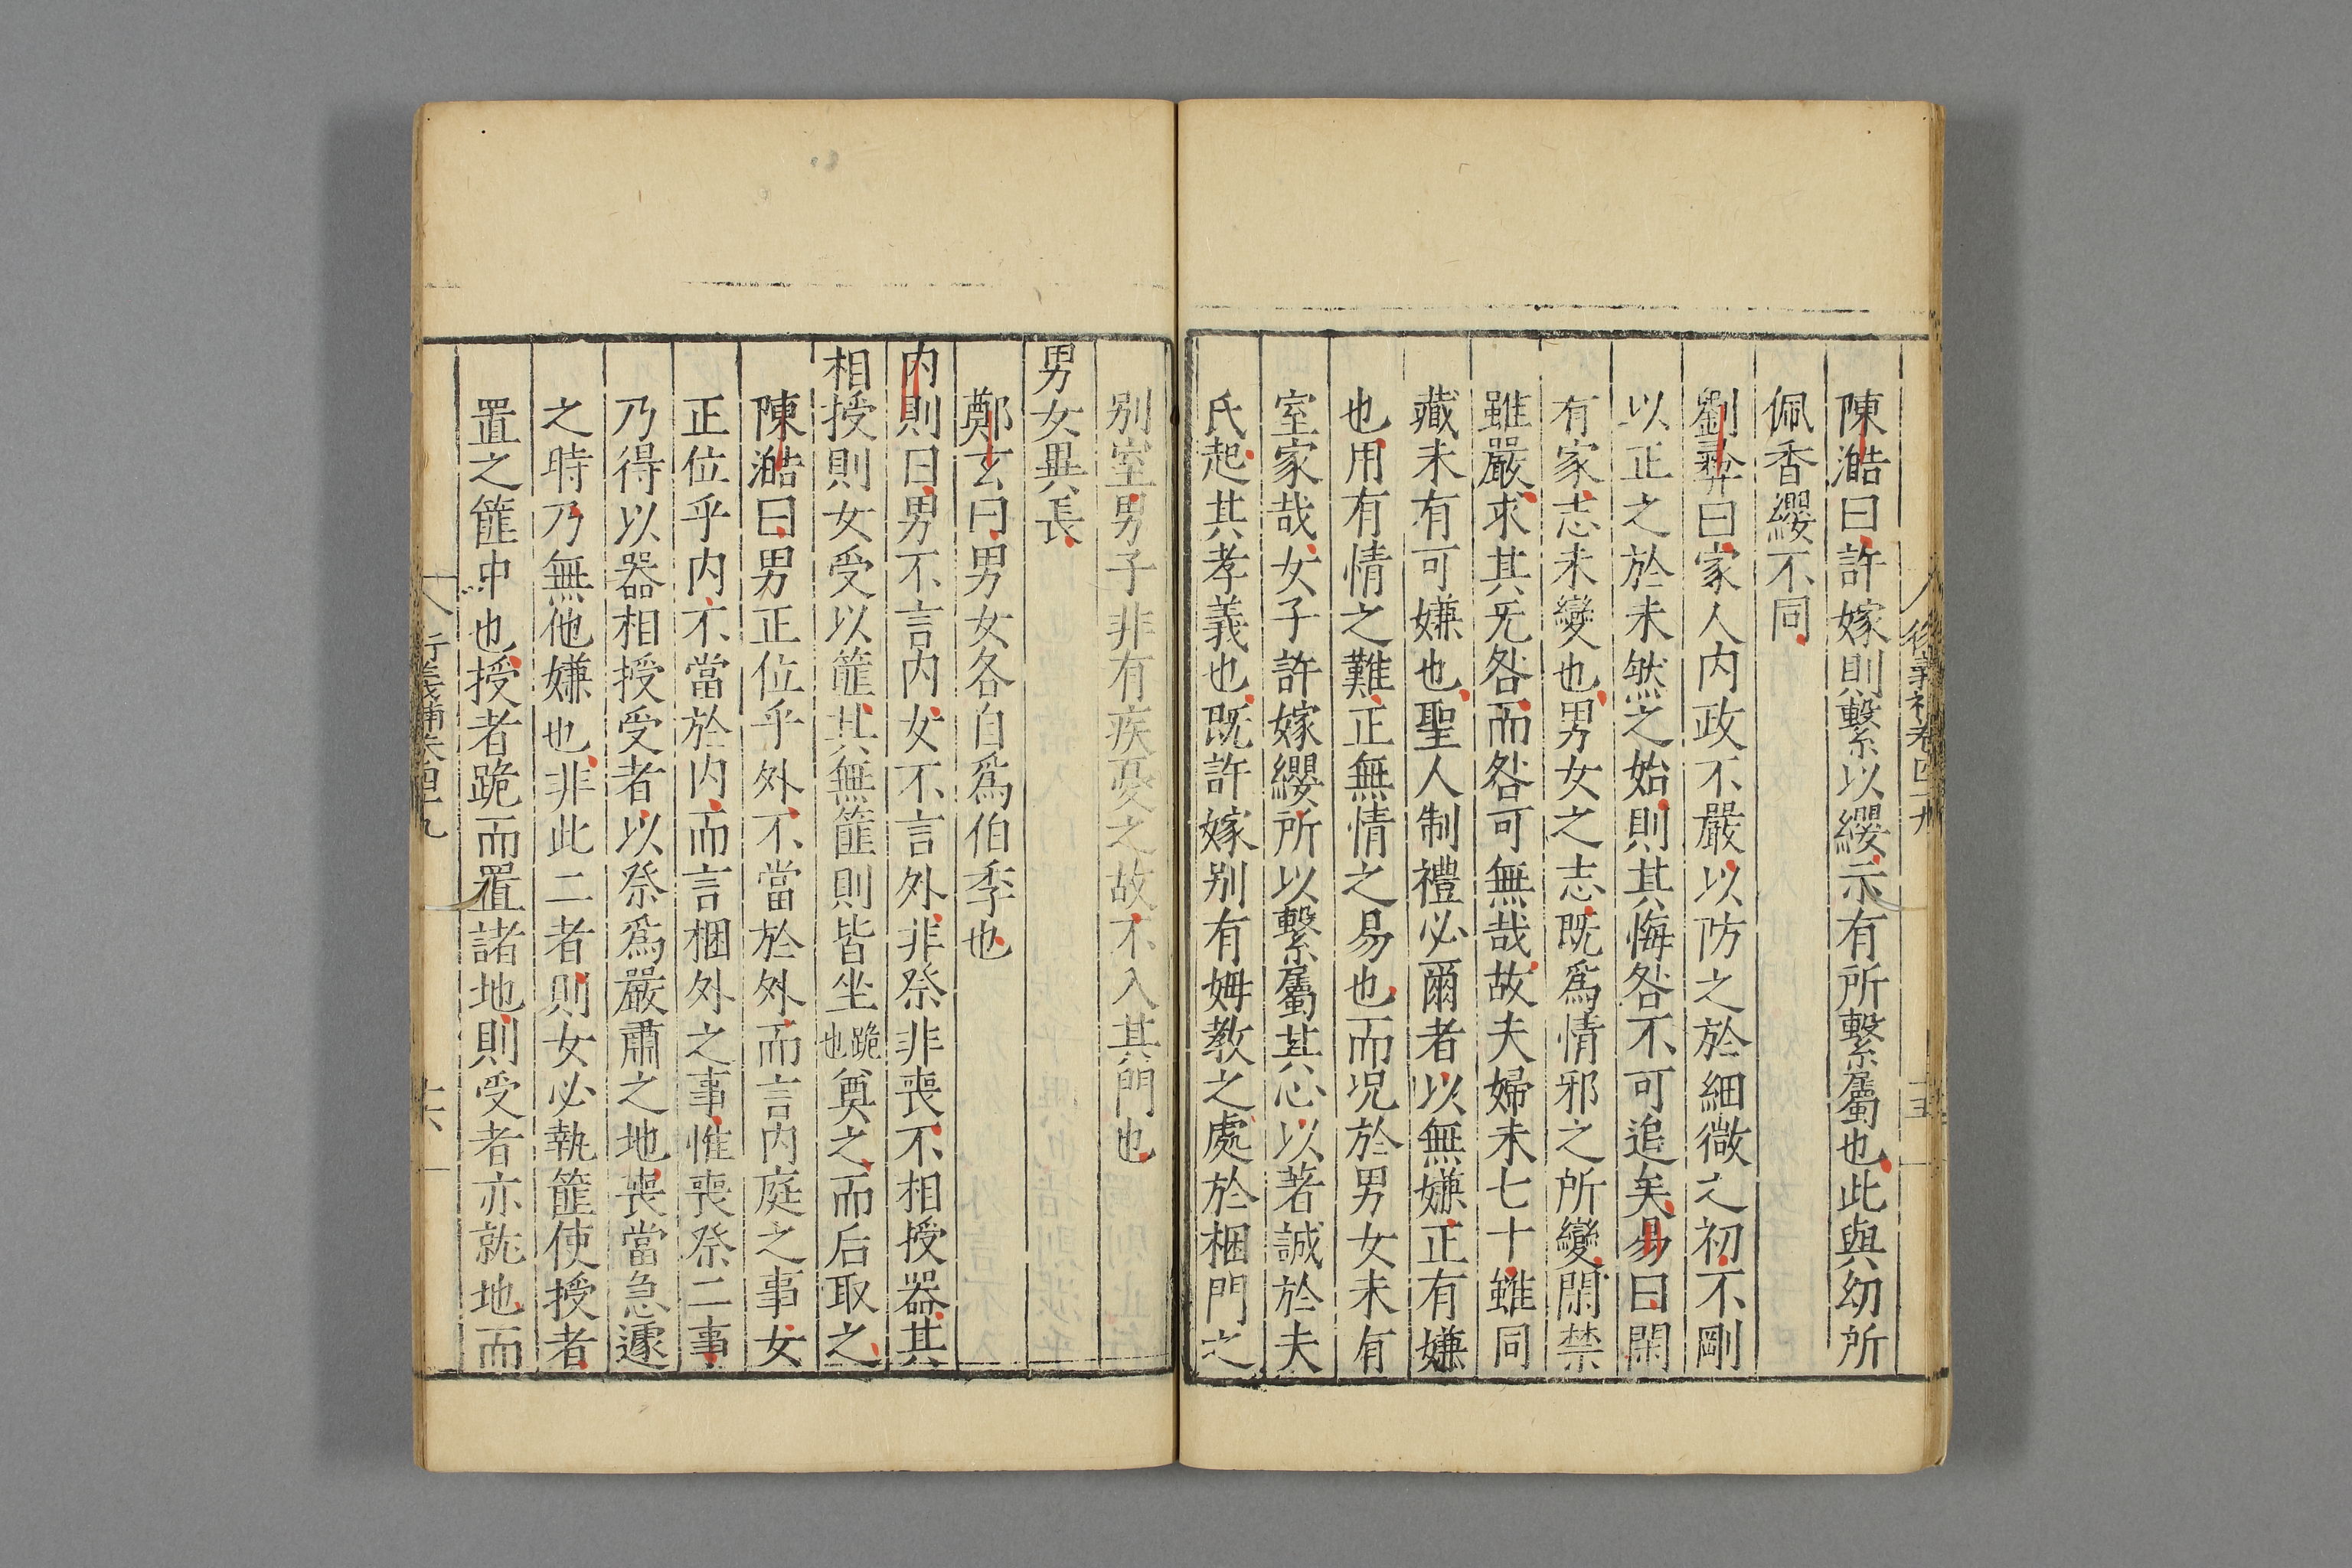 陳澔曰許嫁則繫以纓示有所繫屬也此與幼所
佩香纓不同
劉彝曰家人内政不嚴以防之於細微之初不剛
以正之於未然之始則其悔咎不可追矣易曰閑
有家志未變也男女之志既爲情邪之所變閑禁
雖嚴求其无咎而咎可無哉故夫婦未七十雖同
藏未有可嫌也聖人制禮必爾者以無嫌正有嫌
也用有情之難正無情之易也而况於男女未有
室家哉女子許嫁纓所以繫屬其心以著誠於夫
氏起其孝義也既許嫁别有姆教之處於梱門之
别室男子非有疾憂之故不入其門也
男女異長
鄭玄曰男女各自爲伯季也
内則曰男不言内女不言外非祭非喪不相授器其
相授則女受以篚其無篚則皆坐跪也奠之而后取之
陳澔曰男正位乎外不當於外而言内庭之事女
正位乎内不當於内而言梱外之事惟喪祭二事
乃得以器相授受者以祭爲嚴肅之地喪當急遽
之時乃無他嫌也非此二者則女必執篚使授者
置之篚中也授者跪而置諸地則受者亦就地而